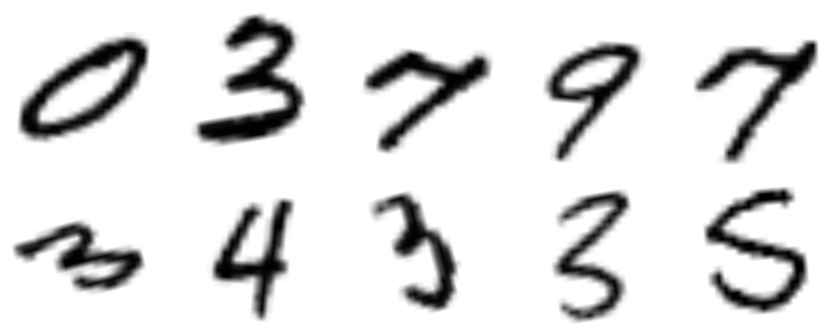 0 3 7 9 7
3 4 3 3 5